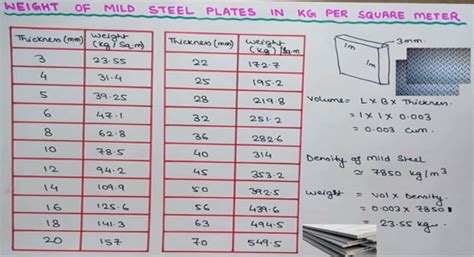 WEIGHT OF MILD STEEL PLATES IN KG PER SQUARE METER
Thickness (mm) Weight (Kg/Sq.m)
3 23.55
4 31.4
5 39.25
6 47.1
8 62.8
10 78.5
12 94.2
14 109.9
16 125.6
18 141.3
20 157
Thickness (mm) Weight (Kg)/Sq.m
22 172.7
25 195.2
28 219.8
32 251.2
36 282.6
40 314
45 353.2
50 392.5
56 439.6
63 494.5
70 549.5
3mm
1m
1m
Volume = L x B x Thickness
= 1 x 1 x 0.003
= 0.003 cum.
Density of Mild Steel
≃ 7850 kg/m³
Weight = Vol x Density
= 0.003 x 7850
= 23.55 kg